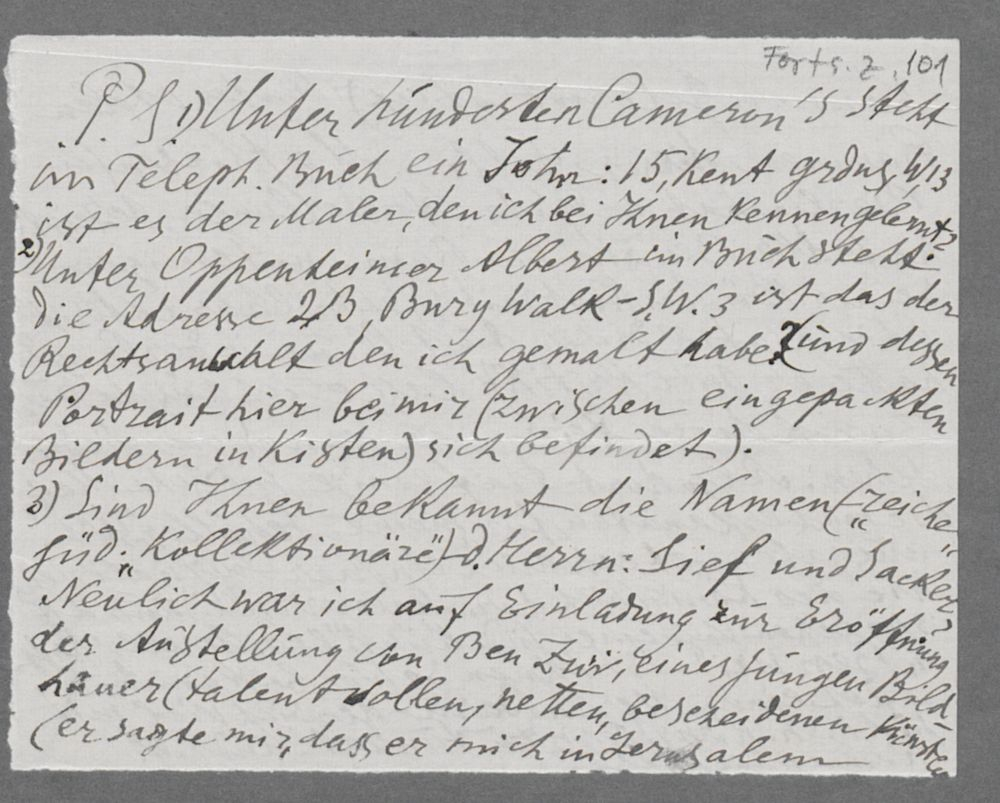 Forts. z. 101
P. S. 1) Unter hunderten Cameron's steht
im Teleph. Buch ein John: 15, Kent grdns W,13
ist es der Maler, den ich bei Ihnen kennengelernt?
2) Unter Oppenheimer Albert im Buch steht:
die Adresse 2,B, Bury Walk - S.W.3 ist das der
Rechtsanwalt den ich gemalt habe? (und dessen
Portrait hier bei mir (zwischen eingepackten
Bildern in Kisten) sich befindet).
3) Sind Ihnen bekannt die Namen („reiche"
jüd. „Kollektionäre") d. Herrn: Sief und Sacker?
Neulich war ich auf Einladung zur Eröffnung
der Austellung von Ben Zwi, eines jungen Bild-
hauer (talentvollen, netten, bescheidenen Künstler
(er sagte mir, dass er mich in Jerusalem